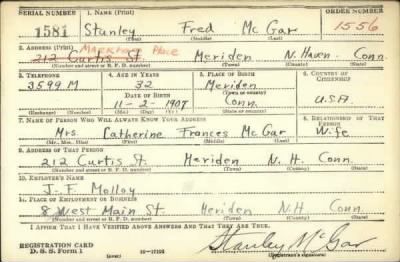 SERIAL NUMBER 1. NAME (Print) ORDER NUMBER
1581 Stanley Fred McGar 1556
(First) (Middle) (Last)
2. ADDRESS (Print)
212 Curtis St. Meriden N. Haven Conn.
(Number and street or R. F. D. number) (Town) (County) (State)
3. TELEPHONE 4. AGE IN YEARS 5. PLACE OF BIRTH 6. COUNTRY OF CITIZENSHIP
3599 M 32 Meriden
DATE OF BIRTH (Town or county)
11-2-1907 Conn. U.S.A.
(Exchange) (Number) (Mo.) (Day) (Yr.) (State or country)
7. NAME OF PERSON WHO WILL ALWAYS KNOW YOUR ADDRESS 8. RELATIONSHIP OF THAT PERSON
Mrs. Catherine Frances McGar Wife
(Mr., Mrs., Miss) (First) (Middle) (Last)
9. ADDRESS OF THAT PERSON
212 Curtis St. Meriden N. H. Conn.
(Number and street or R. F. D. number) (Town) (County) (State)
10. EMPLOYER'S NAME
J. F. Molloy
11. PLACE OF EMPLOYMENT OR BUSINESS
8 West Main St. Meriden N.H Conn.
(Number and street or R. F. D. number) (Town) (County) (State)
I AFFIRM THAT I HAVE VERIFIED ABOVE ANSWERS AND THAT THEY ARE TRUE.
REGISTRATION CARD
D. S. S. Form 1 (over) Stanley McGar
(Registrant's signature)